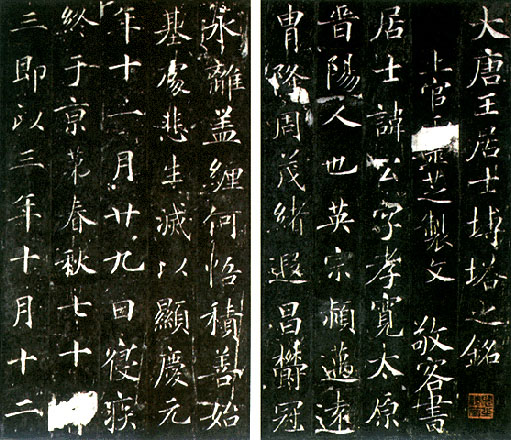 大唐王居士塼塔之銘
上官芝製文 敬客書
居士諱公字孝寬太原
晉陽人也英宗穎邁遠
冑隆周茂緒遐昌欝冠
永離盖纏何悟積善始
基處悲生滅以顯慶元
年十一月廿九日寑疾
終于京苐春秋七十
三即以三年十月十二